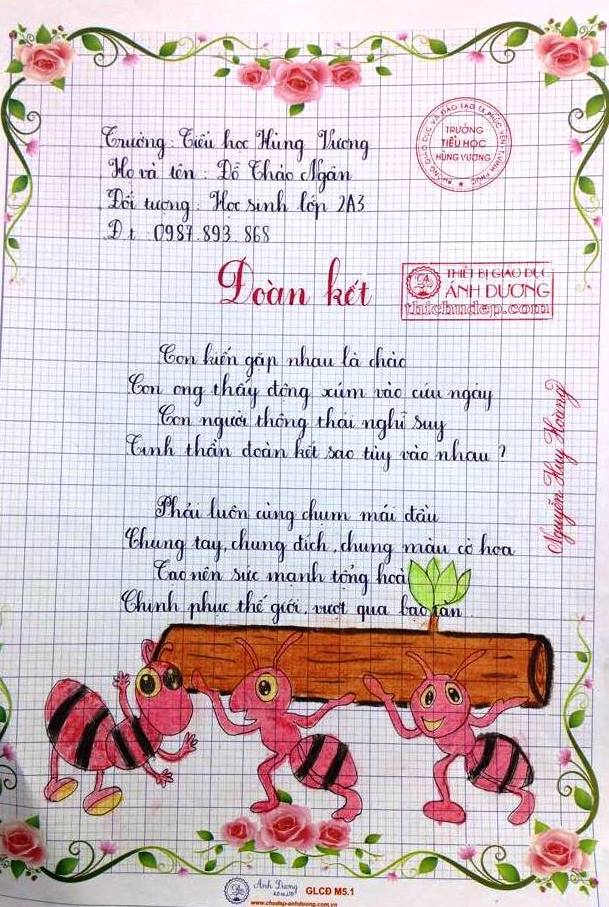 Trường: Tiểu học Hùng Vương
Họ và tên: Đỗ Thảo Ngân
Đối tượng: Học sinh lớp 2A3
Đt: 0987.893.868
PHÒNG GIÁO DỤC VÀ ĐÀO TẠO TX.PHÚC YÊN T.VĨNH PHÚC
TRƯỜNG
TIỂU HỌC
HÙNG VƯƠNG
Đoàn kết
THIẾT BỊ GIÁO DỤC
ÁNH DƯƠNG
thichudep.com
Con kiến gặp nhau là chào
Con ong thấy động xúm vào cứu ngay
Con người thông thái nghĩ suy
Tinh thần đoàn kết sao tùy vào nhau?
Nguyễn Huy Hoàng
Phải luôn cùng chụm mái đầu
Chung tay, chung đích, chung màu cờ hoa
Tạo nên sức mạnh tổng hoà
Chinh phục thế giới, vượt qua bạo tàn
Ánh Dương
GLCĐ M5.1
www.chudep-anhduong.com.vn